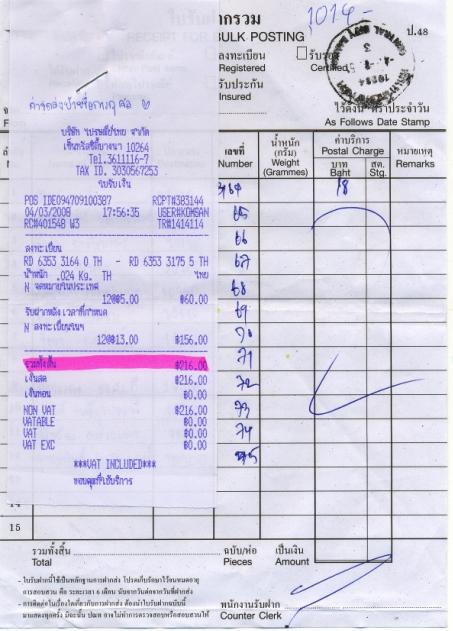 ใบรับฝากรวม
RECEIPT FOR BULK POSTING
1014-
ป.48
ลงทะเบียน
Registered
รับรอง
Certified
รับประกัน
Insured
ไว้ดังนี้ ตราประจำวัน
As Follows Date Stamp
บริษัท ไปรษณีย์ไทย จำกัด
เซ็นทรัลซิตี้บางนา 10264
Tel.3611116-7
TAX ID. 3030567253
ใบรับเงิน
POS IDE094709100387 RCPT#383144
04/03/2008 17:56:35 USER#KOMSAN
RC#401548 W3 TR#1414114
ลงทะเบียน
RD 6353 3164 0 TH - RD 6353 3175 5 TH
น้ำหนัก .024 Kg. TH ไทย
N จดหมายในประเทศ
12@฿5.00 ฿60.00
รับฝากหลัง เวลาที่กำหนด
N ลงทะเบียนในฯ
12@฿13.00 ฿156.00
รวมทั้งสิ้น ฿216.00
เงินสด ฿216.00
เงินทอน ฿0.00
NON VAT ฿216.00
VATABLE ฿0.00
VAT ฿0.00
VAT EXC ฿0.00
***VAT INCLUDED***
ขอบคุณที่ใช้บริการ
เลขที่ น้ำหนัก (กรัม) ค่าบริการ หมายเหตุ
Number Weight (Grammes) Postal Charge Remarks
บาท Baht สต. Stg.
3164 18
65
66
67
68
69
70
71
72
73
74
75
14
15
รวมทั้งสิ้น ฉบับ/ห่อ เป็นเงิน
Total Pieces Amount
- ใบรับฝากนี้ใช้เป็นหลักฐานการฝากส่ง โปรดเก็บรักษาไว้จนหมดอายุ
การสอบสวน คือ ระยะเวลา 6 เดือน นับจากวันต่อจากวันที่ฝากส่ง
- การติดต่อในเรื่องใดเกี่ยวกับการฝากส่ง ต้องนำใบรับฝากฉบับนี้
มาแสดงทุกครั้ง มิฉะนั้น ปณท อาจไม่ทำการตรวจสอบหรือสอบสวนให้
พนักงานรับฝาก
Counter Clerk